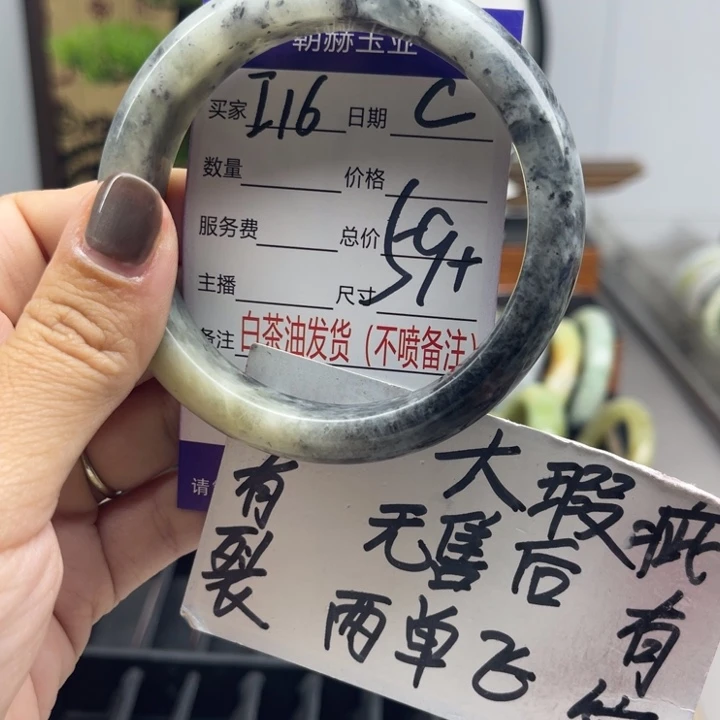 朝赫玉业
买家 I16 日期 C
数量 价格
服务费 总价
主播 尺寸 59+
备注 白茶油发货（不喷备注）
请
大瑕疵
有裂
无售后 有
两单飞